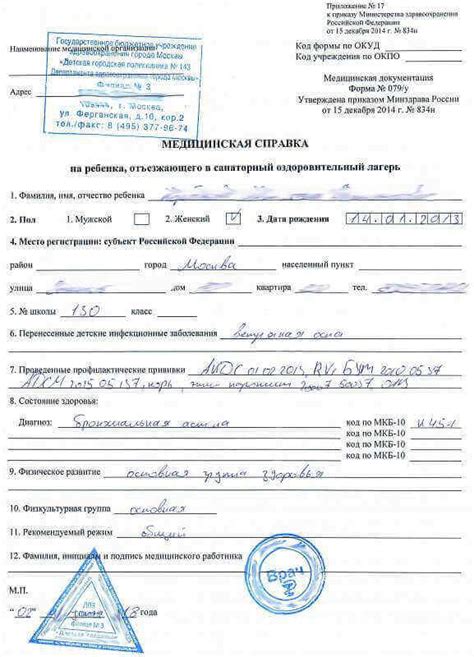 Приложение № 17
к приказу Министерства здравоохранения
Российской Федерации
от 15 декабря 2014 г. № 834н
Наименование медицинской организации
Государственное бюджетное учреждение
здравоохранения города Москвы
«Детская городская поликлиника № 143
Департамента здравоохранения города Москвы»
Филиал № 3
Адрес
г. Москва,
ул. Ферганская, д.10, кор.2
тел./факс: 8 (495) 377-96-74
Код формы по ОКУД
Код учреждения по ОКПО
Медицинская документация
Форма № 079/у
Утверждена приказом Минздрава России
от 15 декабря 2014 г. № 834н
МЕДИЦИНСКАЯ СПРАВКА
на ребенка, отъезжающего в санаторный оздоровительный лагерь
1. Фамилия, имя, отчество ребенка
2. Пол 1. Мужской 2. Женский V 3. Дата рождения 14.01.2013
4. Место регистрации: субъект Российской Федерации
район город Москва населенный пункт
улица дом квартира тел.
5. № школы 130 класс
6. Перенесенные детские инфекционные заболевания ветряная оспа
7. Проведенные профилактические прививки АКДС 01.02.2013, RV1
8. Состояние здоровья:
Диагноз: бронхиальная астма код по МКБ-10
код по МКБ-10
код по МКБ-10
9. Физическое развитие основная группа здоровья
10. Физкультурная группа основная
11. Рекомендуемый режим общий
12. Фамилия, инициалы и подпись медицинского работника
Врач
М.П.
года